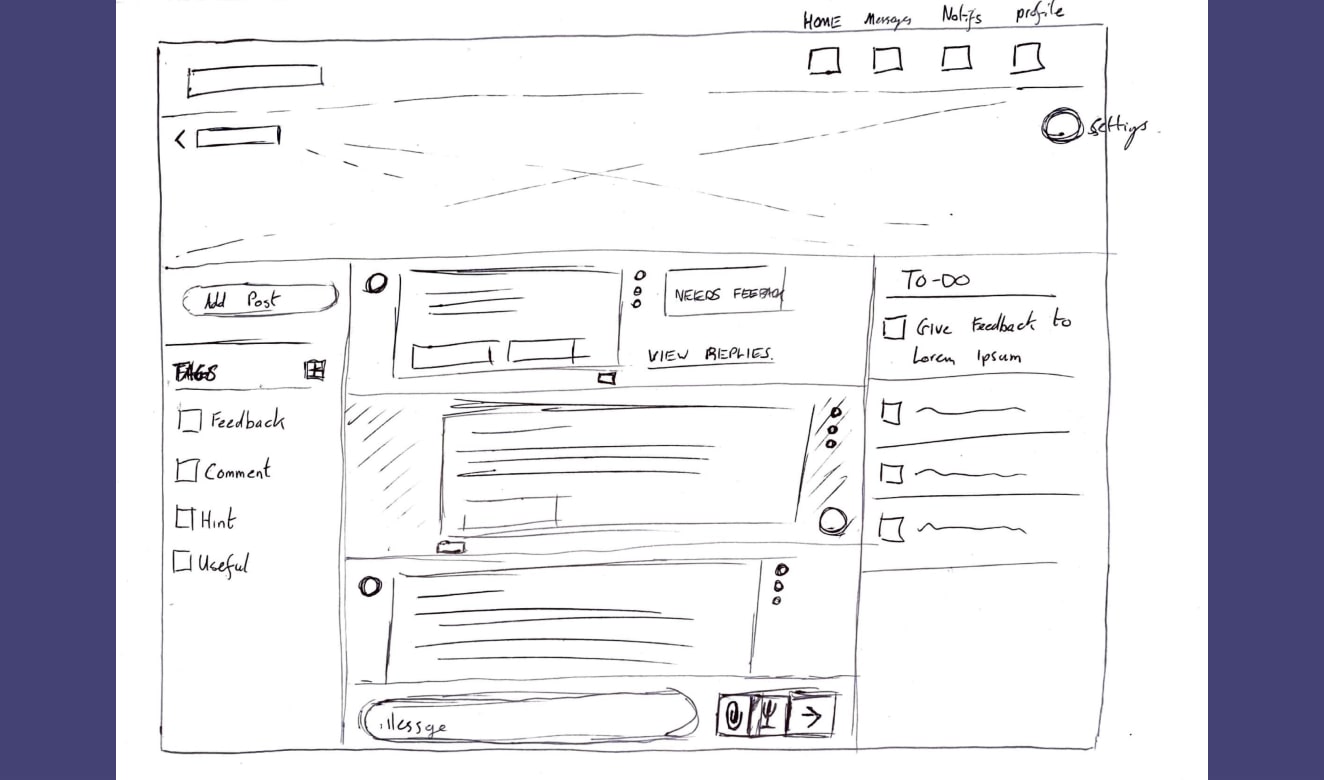 HOME Messages Notifs profile
Settigs.
Add Post
TAGS
Feedback
Comment
Hint
Useful
NEEDS FEEBACK
VIEW REPLIES.
Message
TO-DO
Give Feedback to
Lorem Ipsum